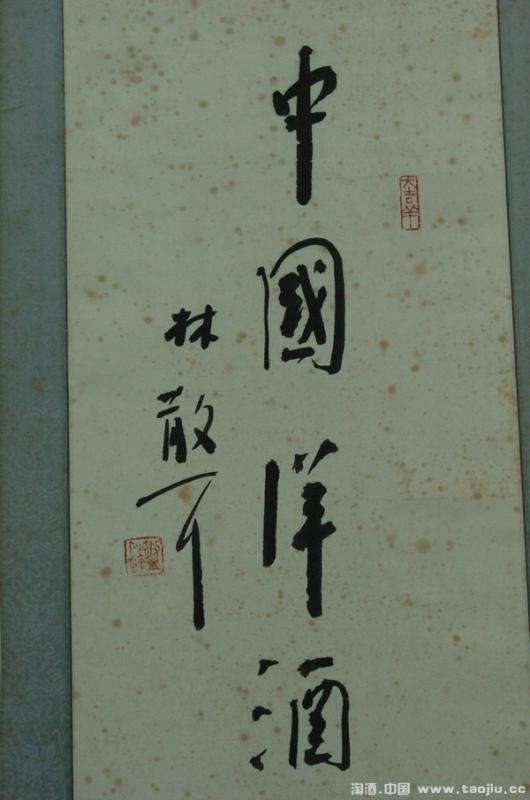 中國洋酒
林散耳
大吉羊
淘酒.中国 www.taojiu.cc